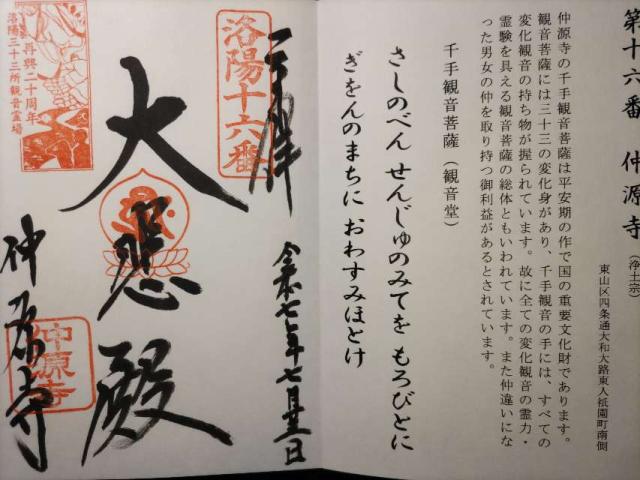 第十六番 仲源寺(浄土宗)
東山区四条通大和大路東入祇園町南側
仲源寺の千手観音菩薩は平安期の作で国の重要文化財であります。
観音菩薩には三十三の変化身があり、千手観音の手には、すべての
変化観音の持ち物が握られています。故に全ての変化観音の霊力・
霊験を具える観音菩薩の総体ともいわれています。また仲違いにな
った男女の仲を取り持つ御利益があるとされています。
千手観音菩薩(観音堂)
さしのべん せんじゅのみてを もろびとに
ぎをんのまちに おわすみほとけ
洛陽十六番
令和七年七月
日
大悲殿
仲源寺
仲源寺
再興二十周年
洛陽三十三所観音霊場